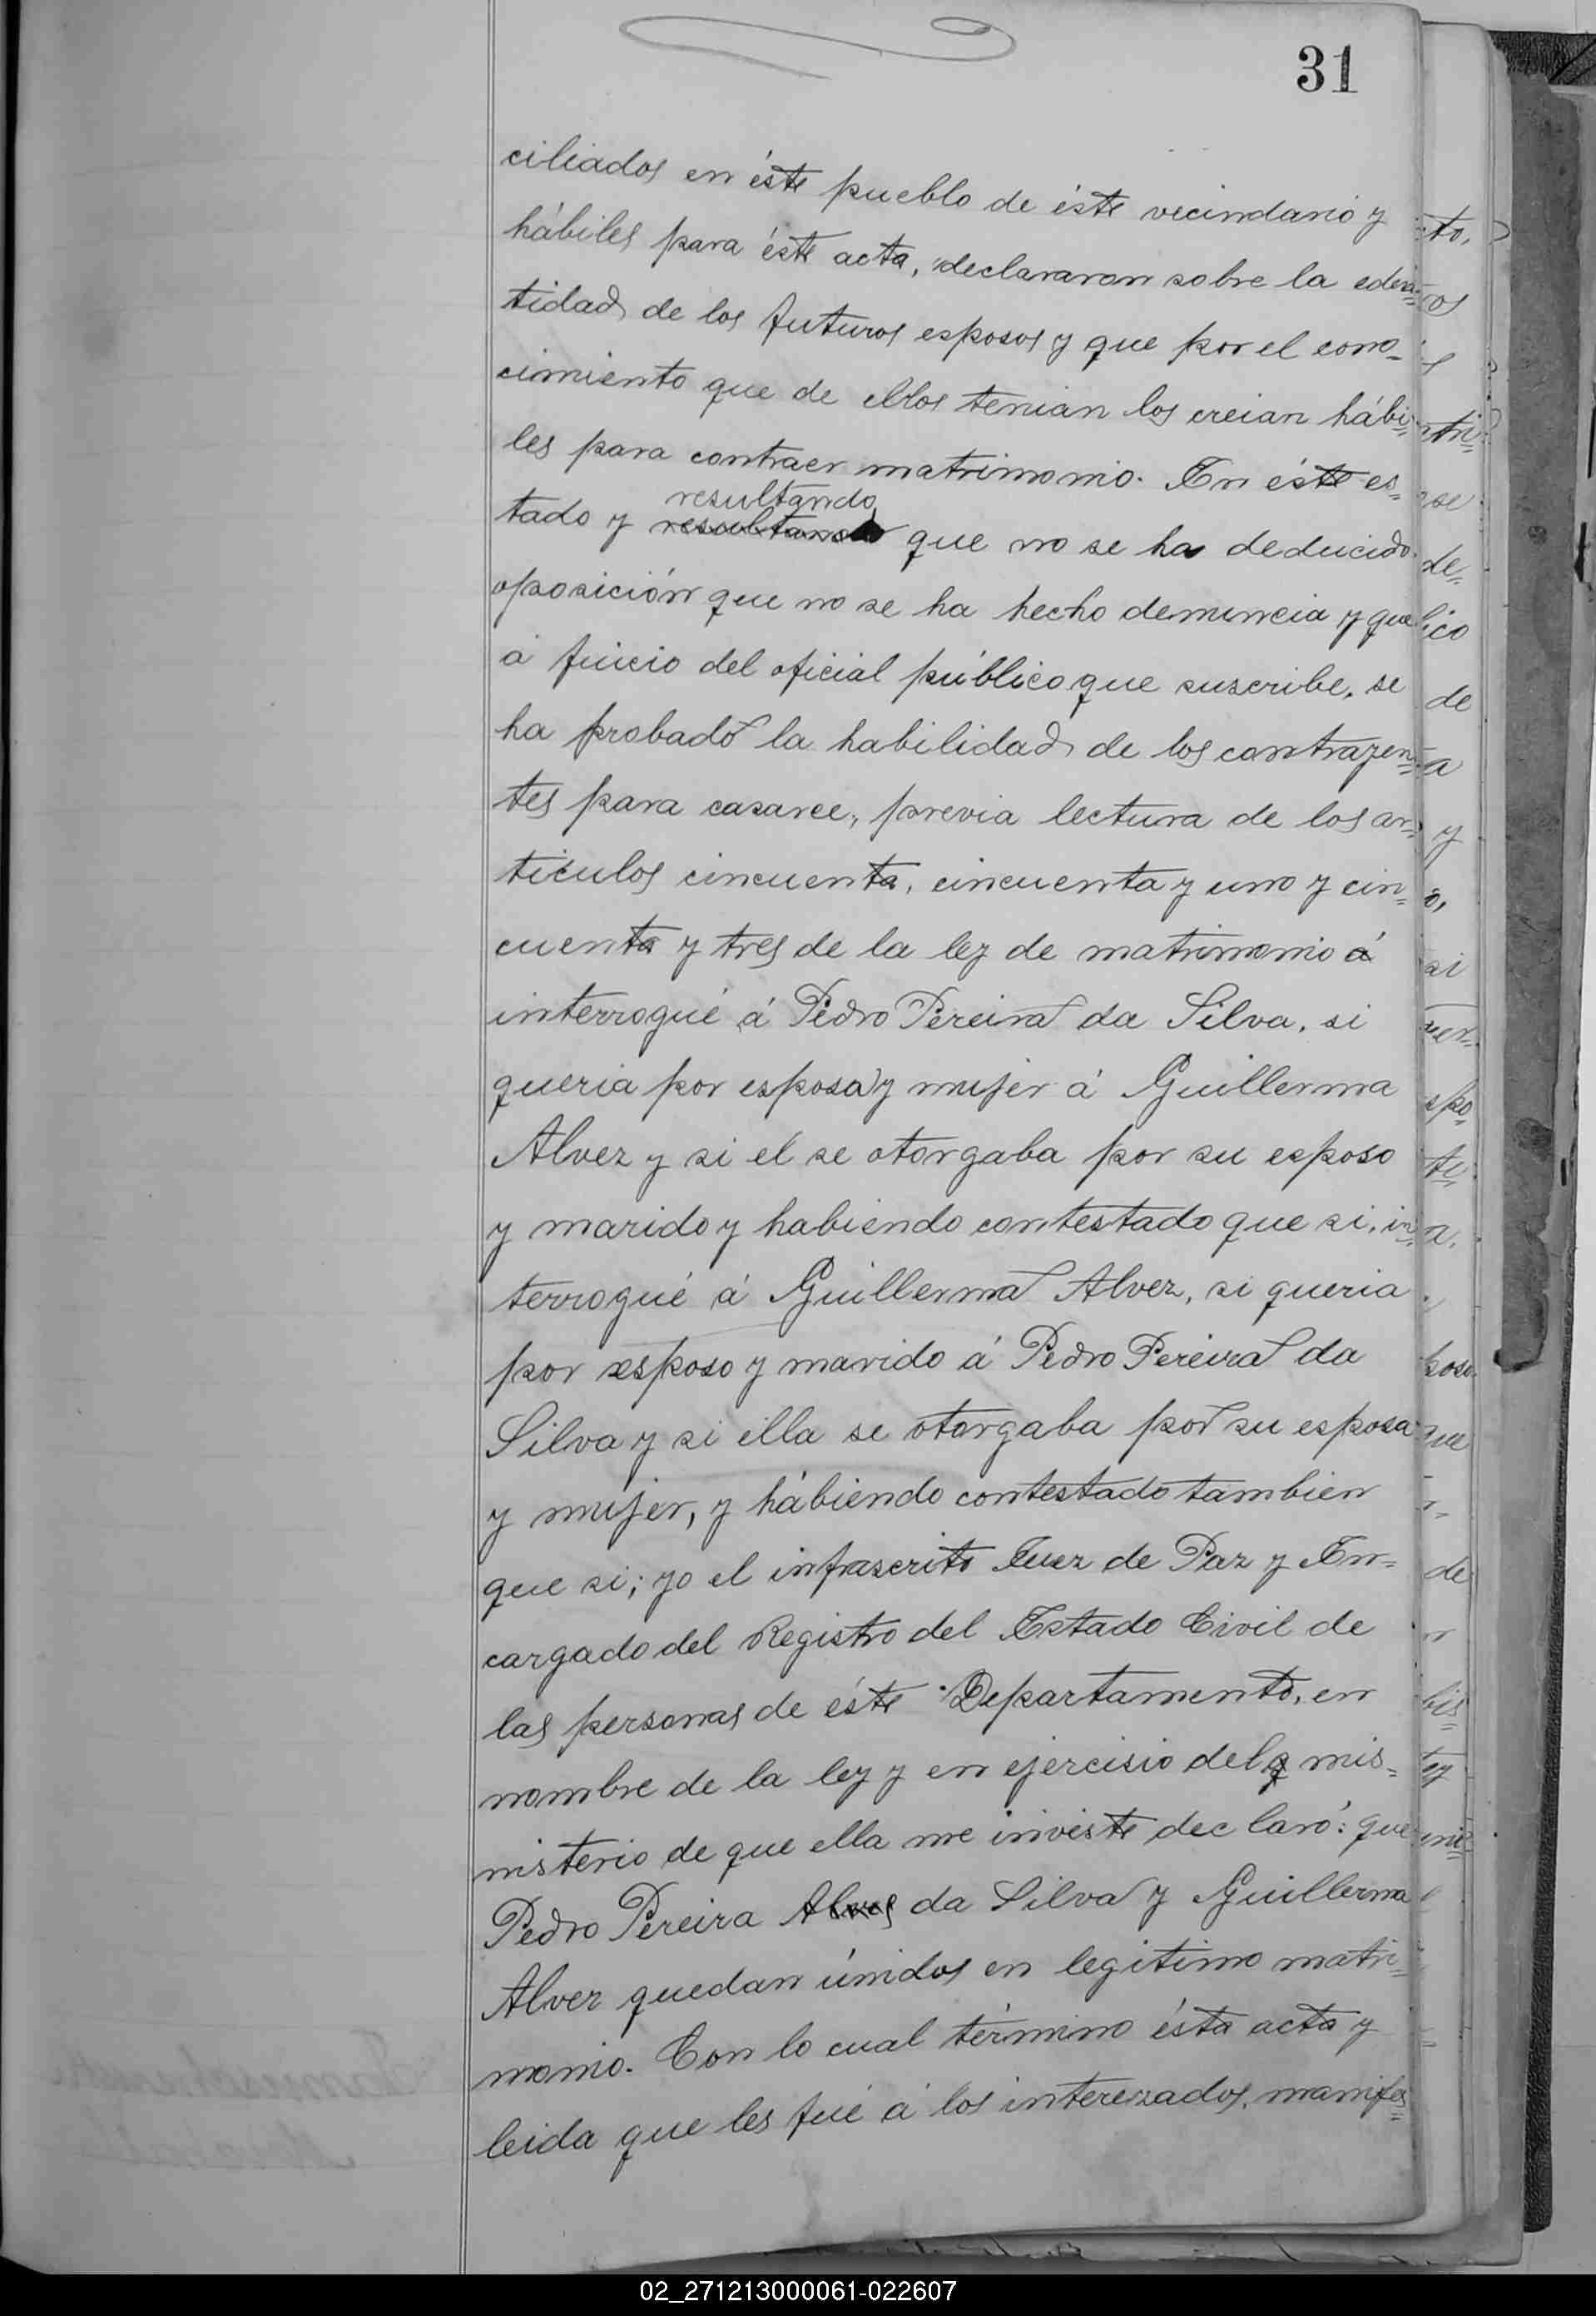 31
ciliados en éste pueblo de éste vecindario y
hábiles para éste acta, declararon sobre la eden=
tidad de los futuros esposos y que por el cono=
cimiento que de ellos tenian los creian hábi=
les para contraer matrimonio. En éste es=
resultando
tado y resultando que no se ha deducido
oposición que no se ha hecho denuncia y que
á juicio del oficial público que suscribe, se
ha probado la habilidad de los contrayen=
tes para casarce, previa lectura de los ar=
ticulos cincuenta, cincuenta y uno y cin=
cuenta y tres de la ley de matrimonio á
interrogué á Pedro Pereira da Silva, si
queria por esposa y mujer á Guillerma
Alvez y si el se otorgaba por su esposo
y marido y habiendo contestado que si, in=
terrogué á Guillerma Alvez, si queria
por esposo y marido á Pedro Pereira da
Silva y si ella se otorgaba por su esposa
y mujer, y hábiendo contestado tambien
que si; yo el infrascrito Juez de Paz y En=
cargado del Registro del Estado Civil de
las personas de éste Departamento, en
nombre de la ley y en ejercisio del mis=
nisterio de que ella me inviste declaró: que
Pedro Pereira Alves da Silva y Guillerma
Alvez quedan únidos en legitimo matri=
monio. Con lo cual término ésta acta y
leida que les fué á los interezados, manifes=
02_271213000061-022607